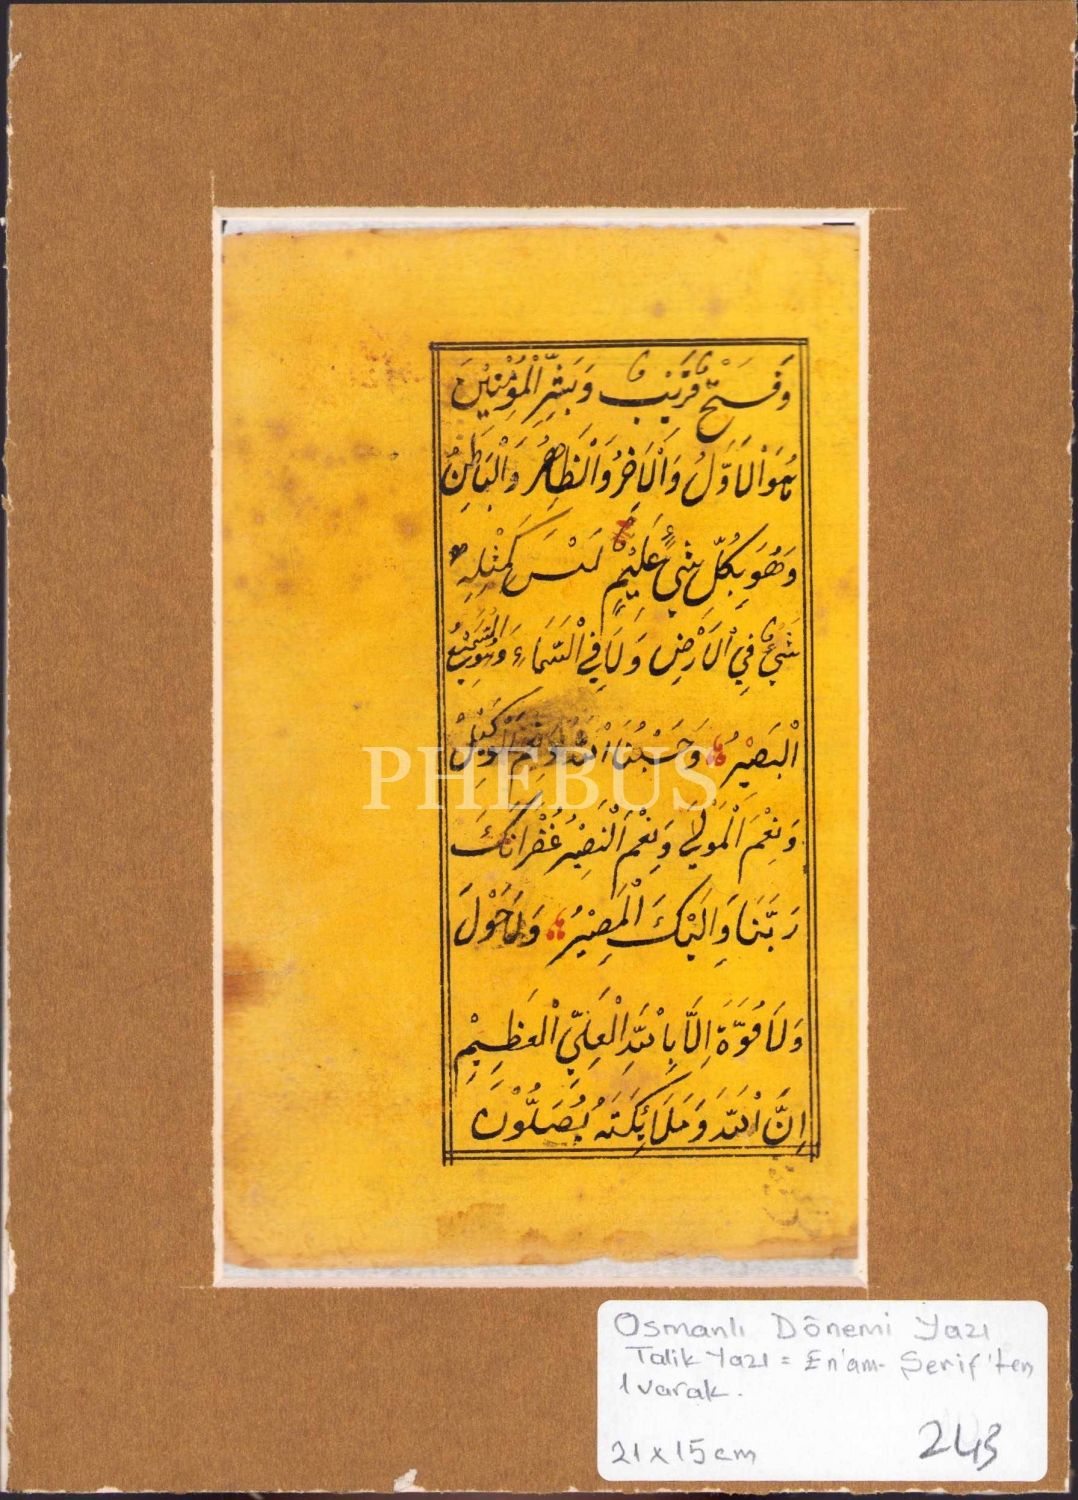 وَفَتْحٌ قَرِيْبٌ وَبَشِّرِ الْمُؤْمِنِيْنَ
هُوَ الْاَوَّلُ وَالْاَخِرُ وَالْظَاهِرُ وَالْبَاطِنُ
وَهُوَ بِكُلِّ شَيْءٍ عَلِيْمٌ لَيْسَ كَمِثْلِهِ
شَيْءٌ فِي الْاَرْضِ وَلَا فِي الْسَّمَاءِ وَهُوَ السَّمِيْعُ
الْبَصِيْرُ وَحَسْبُنَا اللّٰهُ وَنِعْمَ الْوَكِيْلُ
وَنِعْمَ الْمَوْلٰي وَنِعْمَ الْنَصِيْرُ غُفْرَانَكَ
رَبَّنَا وَاِلَيْكَ الْمَصِيْرُ وَلَا حَوْلَ
وَلَا قُوَّةَ اِلَّا بِاللّٰهِ الْعَلِيِّ الْعَظِيْمِ
اِنَّ اللّٰهَ وَمَلَائِكَتَهُ يُصَلُّوْنَ
PHEBUS
Osmanlı Dönemi Yazı
Talik Yazı = En'am-Şerif'ten
1 varak.
21 x 15 cm
243